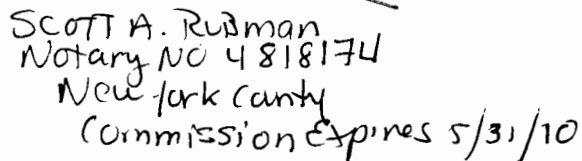 SCOTT A. RUBMAN
Notary NO 4818174
New York County
Commission Expires 5/31/10